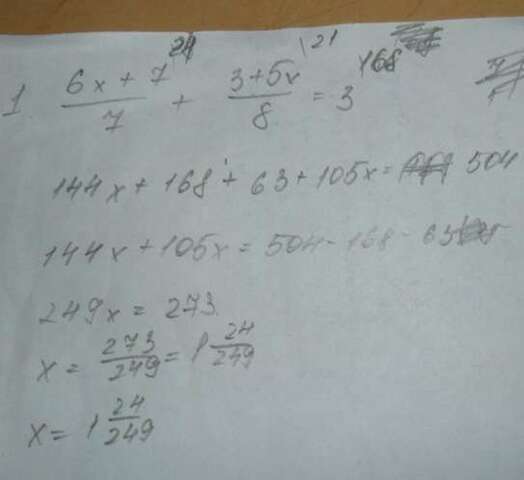 1 (6x + 7)/7 \24 + (3+5x)/8 \21 = 3 \168
144x + 168 + 63 + 105x = 504
144x + 105x = 504 - 168 - 63
249x = 273
x = 273/249 = 1 24/249
x = 1 24/249